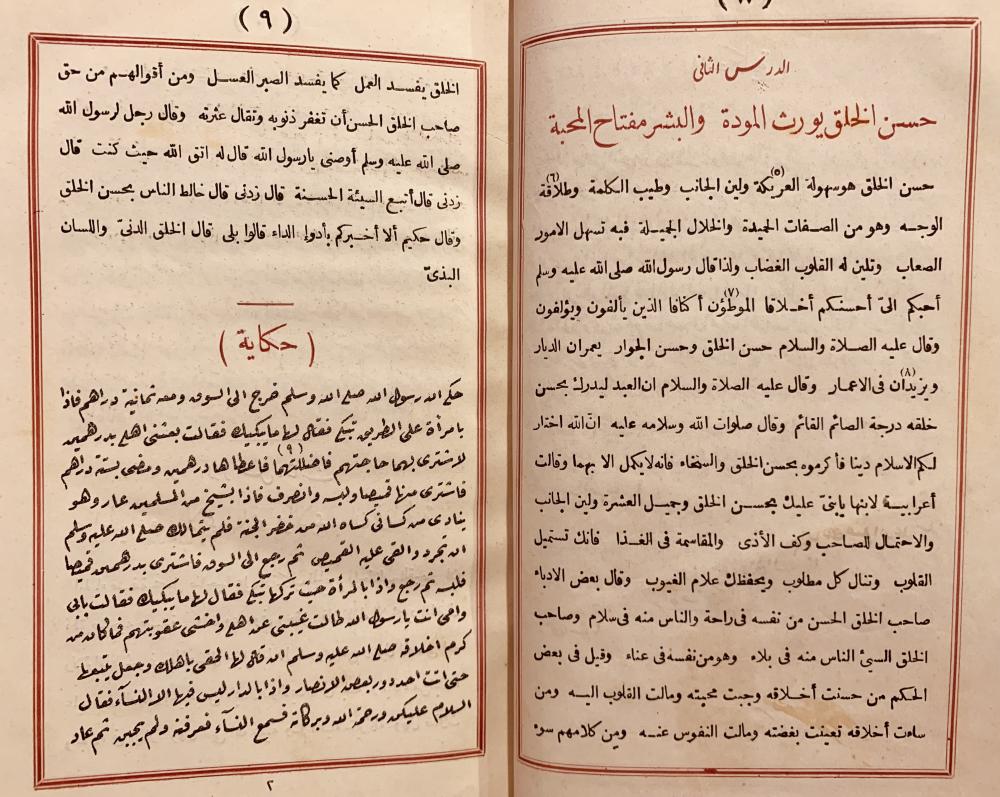 الدرس الثانى
حسن الخلق يورث المودة والبشر مفتاح المحبة
حسن الخلق هو سهولة العريكة (٥) ولين الجانب وطيب الكلمة وطلاقة (٦)
الوجه وهو من الصفات الحميدة والخلال الجميلة فبه تسهل الامور
الصعاب وتلين له القلوب الغضاب ولذا قال رسول الله صلى الله عليه وسلم
أحبكم الىّ أحسنكم أخلاقا الموطؤن (٧) أكنافا الذين يألفون ويؤلفون
وقال عليه الصلاة والسلام حسن الخلق وحسن الجوار يعمران الديار
ويزيدان (٨) فى الاعمار وقال عليه الصلاة والسلام ان العبد ليدرك بحسن
خلقه درجة الصائم القائم وقال صلوات الله وسلامه عليه ان الله اختار
لكم الاسلام دينا فأكرموه بحسن الخلق والسخاء فانه لا يكمل الا بهما وقالت
أعرابية لابنها يابنىّ عليك بحسن الخلق وجميل العشرة ولين الجانب
والاحتمال للصاحب وكف الأذى والمقاسمة فى الغذا فانك تستميل
القلوب وتنال كل مطلوب ويحفظك علام الغيوب وقال بعض الادباء
صاحب الخلق الحسن من نفسه فى راحة والناس منه فى سلام وصاحب
الخلق السيئ الناس منه فى بلاء وهو من نفسه فى عناء وقيل فى بعض
الحكم من حسنت أخلاقه وجبت محبته ومالت القلوب اليه ومن
ساءت أخلاقه تعينت بغضته ومالت النفوس عنه ومن كلامهم سوء
(٩)
الخلق يفسد العمل كما يفسد الصبر العسل ومن أقوالهم من حق
صاحب الخلق الحسن أن تغفر ذنوبه وتقال عثرته وقال رجل لرسول الله
صلى الله عليه وسلم أوصنى يارسول الله قال له اتق الله حيث كنت قال
زدنى قال أتبع السيئة الحسنة قال زدنى قال خالط الناس بحسن الخلق
وقال حكيم ألا أخبركم بأدوإ الداء قالوا بلى قال الخلق الدنىّ واللسان
البذىّ
( حكاية )
حكى ان رسول الله صلى الله عليه وسلم خرج الى السوق ومعه ثمانية دراهم فاذا
بامرأة على الطريق تبكى فقال لها ما يبكيك فقالت بعثنى اهلى بدرهمين
لاشترى بهما حاجتهم فاضللتهما (٩) فاعطاها درهمين ومضى بستة دراهم
فاشترى منها قميصا ولبسه وانصرف فاذا بشيخ من المسلمين عار وهو
ينادى من كسانى كساه الله من خضر الجنة فلم يتمالك صلى الله عليه وسلم
ان تجرد والقى عليه القميص ثم رجع الى السوق فاشترى بدرهمين قميصا
فلبسه ثم رجع واذا بالمرأة حيث تركها تبكى فقال لها ما يبكيك فقالت بابى
وامى انت يارسول الله طالت غيبتى عن اهلى واخشى عقوبتهم فما كان من
كرم اخلاقه صلى الله عليه وسلم ان قال لها الحقى باهلك وجعل يتبعها
حتى اتت احد دور بعض الانصار واذا بالدار ليس فيها الا النسآء فقال
السلام عليكن ورحمة الله وبركاته فسمع النسآء فعرفنه ولم يجبن ثم عاد
٢